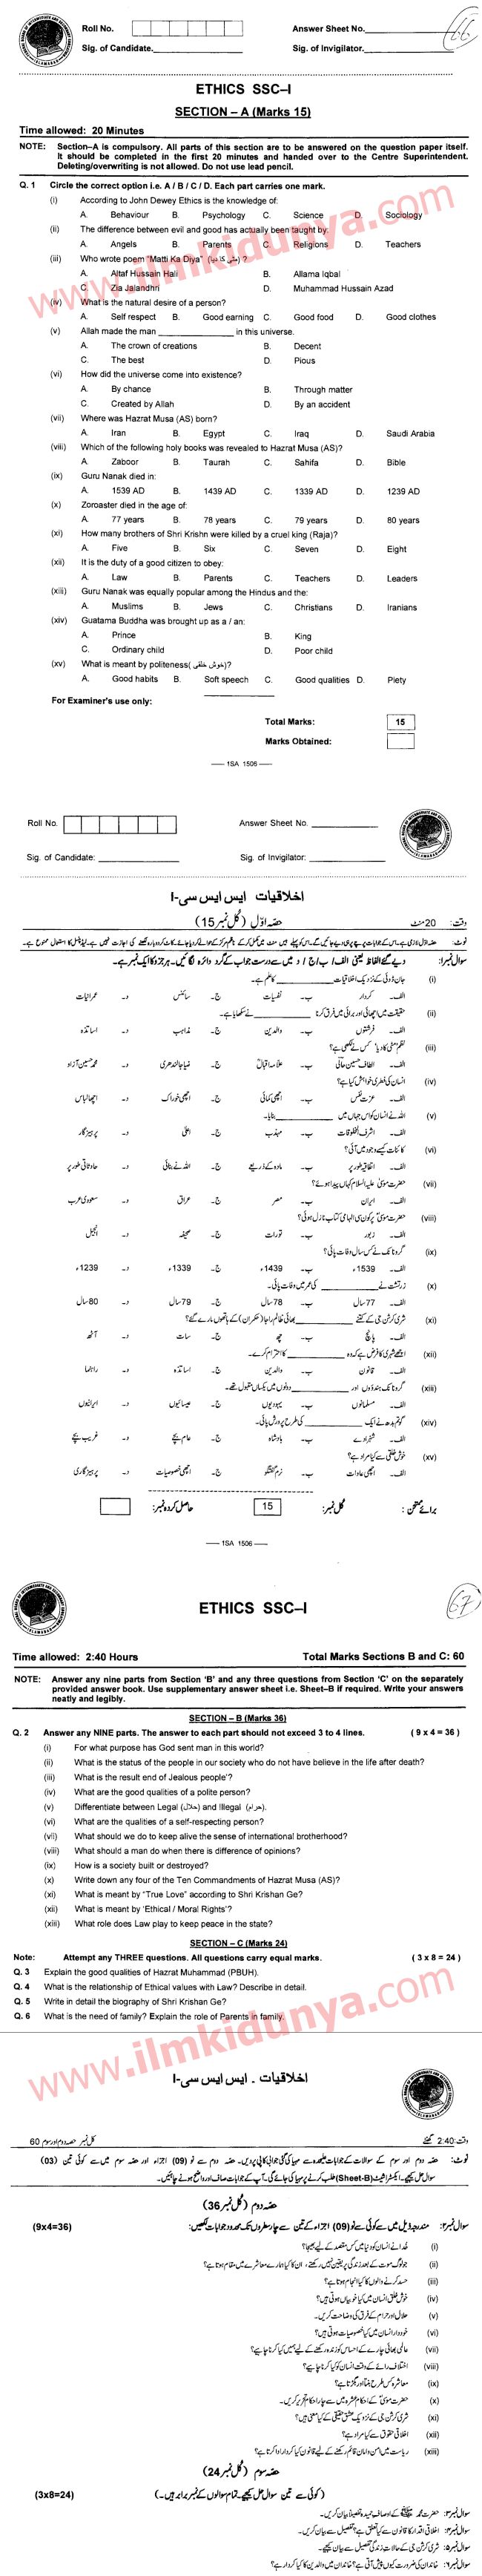 Roll No. Answer Sheet No.
Sig. of Candidate. Sig. of Invigilator.
66
ETHICS SSC–I
SECTION – A (Marks 15)
Time allowed: 20 Minutes
NOTE: Section–A is compulsory. All parts of this section are to be answered on the question paper itself.
It should be completed in the first 20 minutes and handed over to the Centre Superintendent.
Deleting/overwriting is not allowed. Do not use lead pencil.
Q. 1 Circle the correct option i.e. A / B / C / D. Each part carries one mark.
(i) According to John Dewey Ethics is the knowledge of:
A. Behaviour B. Psychology C. Science D. Sociology
(ii) The difference between evil and good has actually been taught by:
A. Angels B. Parents C. Religions D. Teachers
(iii) Who wrote poem "Matti Ka Diya" (مٹی کا دیا) ?
A. Altaf Hussain Hali B. Allama Iqbal
C. Zia Jalandhri D. Muhammad Hussain Azad
(iv) What is the natural desire of a person?
A. Self respect B. Good earning C. Good food D. Good clothes
(v) Allah made the man ________ in this universe.
A. The crown of creations B. Decent
C. The best D. Pious
(vi) How did the universe come into existence?
A. By chance B. Through matter
C. Created by Allah D. By an accident
(vii) Where was Hazrat Musa (AS) born?
A. Iran B. Egypt C. Iraq D. Saudi Arabia
(viii) Which of the following holy books was revealed to Hazrat Musa (AS)?
A. Zaboor B. Taurah C. Sahifa D. Bible
(ix) Guru Nanak died in:
A. 1539 AD B. 1439 AD C. 1339 AD D. 1239 AD
(x) Zoroaster died in the age of:
A. 77 years B. 78 years C. 79 years D. 80 years
(xi) How many brothers of Shri Krishn were killed by a cruel king (Raja)?
A. Five B. Six C. Seven D. Eight
(xii) It is the duty of a good citizen to obey:
A. Law B. Parents C. Teachers D. Leaders
(xiii) Guru Nanak was equally popular among the Hindus and the:
A. Muslims B. Jews C. Christians D. Iranians
(xiv) Guatama Buddha was brought up as a / an:
A. Prince B. King
C. Ordinary child D. Poor child
(xv) What is meant by politeness( خوش خلقی)?
A. Good habits B. Soft speech C. Good qualities D. Piety
For Examiner's use only:
Total Marks: 15
Marks Obtained:
— 1SA 1506 —
Roll No. Answer Sheet No.
Sig. of Candidate: Sig. of Invigilator:
اخلاقیات ایس ایس سی-I
حصہ اوّل (کُل نمبر 15)
وقت: 20 منٹ
سوال نمبر ا: دیے گئے الفاظ یعنی الف / ب / ج / د میں سے درست جواب کے گرد دائرہ لگائیں۔ ہر جزو کا ایک نمبر ہے۔
(i) جان ڈوئی کے نزدیک اخلاقیات ________ کا علم ہے۔
الف۔ کردار ب۔ نفسیات ج۔ سائنس د۔ عمرانیات
(ii) حقیقت میں اچھائی اور برائی میں فرق کرنا ________ نے سکھایا ہے۔
الف۔ فرشتوں ب۔ والدین ج۔ مذاہب د۔ اساتذہ
(iii) نظم "مٹی کا دیا" کس نے لکھی ہے؟
الف۔ الطاف حسین حالی ب۔ علامہ اقبالؒ ج۔ ضیا جالندھری د۔ محمد حسین آزاد
(iv) انسان کی فطری خواہش کیا ہے؟
الف۔ عزت نفس ب۔ اچھی کمائی ج۔ اچھی خوراک د۔ اچھا لباس
(v) اللہ نے انسان کو اس جہاں میں ________ بنایا۔
الف۔ اشرف المخلوقات ب۔ مہذب ج۔ اعلیٰ د۔ پرہیزگار
(vi) کائنات کیسے وجود میں آئی؟
الف۔ اتفاقیہ طور پر ب۔ مادہ کے ذریعے ج۔ اللہ نے بنائی د۔ حادثاتی طور پر
(vii) حضرت موسیٰ علیہ السلام کہاں پیدا ہوئے؟
الف۔ ایران ب۔ مصر ج۔ عراق د۔ سعودی عرب
(viii) حضرت موسیٰؑ پر کون سی الہامی کتاب نازل ہوئی؟
الف۔ زبور ب۔ تورات ج۔ صحیفہ د۔ انجیل
(ix) گرونانک نے کس سال وفات پائی؟
الف۔ 1539ء ب۔ 1439ء ج۔ 1339ء د۔ 1239ء
(x) زرتشت نے ________ کی عمر میں وفات پائی۔
الف۔ 77 سال ب۔ 78 سال ج۔ 79 سال د۔ 80 سال
(xi) شری کرشن جی کے کتنے ________ بھائی ظالم راجا (حکمران) کے ہاتھوں مارے گئے؟
الف۔ پانچ ب۔ چھ ج۔ سات د۔ آٹھ
(xii) اچھے شہری کا فرض ہے کہ وہ ________ کا احترام کرے۔
الف۔ قانون ب۔ والدین ج۔ اساتذہ د۔ راہنما
(xiii) گرونانک ہندوؤں اور ________ دونوں میں یکساں مقبول تھے۔
الف۔ مسلمانوں ب۔ یہودیوں ج۔ عیسائیوں د۔ ایرانیوں
(xiv) گوتم بدھ نے ایک ________ کی طرح پرورش پائی۔
الف۔ شہزادے ب۔ بادشاہ ج۔ عام بچے د۔ غریب بچے
(xv) خوش خلقی سے کیا مراد ہے؟
الف۔ اچھی عادات ب۔ نرم گفتگو ج۔ اچھی خصوصیات د۔ پرہیزگاری
برائے ممتحن: کُل نمبر: 15 حاصل کردہ نمبر:
— 1SA 1506 —
67
ETHICS SSC–I
Time allowed: 2:40 Hours Total Marks Sections B and C: 60
NOTE: Answer any nine parts from Section 'B' and any three questions from Section 'C' on the separately
provided answer book. Use supplementary answer sheet i.e. Sheet–B if required. Write your answers
neatly and legibly.
SECTION – B (Marks 36)
Q. 2 Answer any NINE parts. The answer to each part should not exceed 3 to 4 lines. ( 9 x 4 = 36 )
(i) For what purpose has God sent man in this world?
(ii) What is the status of the people in our society who do not have believe in the life after death?
(iii) What is the result end of Jealous people'?
(iv) What are the good qualities of a polite person?
(v) Differentiate between Legal (حلال) and Illegal (حرام).
(vi) What are the qualities of a self-respecting person?
(vii) What should we do to keep alive the sense of international brotherhood?
(viii) What should a man do when there is difference of opinions?
(ix) How is a society built or destroyed?
(x) Write down any four of the Ten Commandments of Hazrat Musa (AS)?
(xi) What is meant by "True Love" according to Shri Krishan Ge?
(xii) What is meant by 'Ethical / Moral Rights'?
(xiii) What role does Law play to keep peace in the state?
SECTION – C (Marks 24)
Note: Attempt any THREE questions. All questions carry equal marks. ( 3 x 8 = 24 )
Q. 3 Explain the good qualities of Hazrat Muhammad (PBUH).
Q. 4 What is the relationship of Ethical values with Law? Describe in detail.
Q. 5 Write in detail the biography of Shri Krishan Ge?
Q. 6 What is the need of family? Explain the role of Parents in family.
www.ilmkidunya.com
اخلاقیات ۔ ایس ایس سی-I
وقت: 2:40 گھنٹے کل نمبر حصہ دوم اور سوم 60
نوٹ: حصہ دوم اور سوم کے سوالات کے جوابات علیحدہ سے مہیا کی گئی جوابی کاپی پر دیں۔ حصہ دوم سے نو (09) اجزاء اور حصہ سوم میں سے کوئی تین (03)
سوال حل کیجیے۔ ایکسٹرا شیٹ (Sheet-B) طلب کرنے پر مہیا کی جائے گی۔ آپ کے جوابات صاف اور واضح ہونے چاہئیں۔
حصہ دوم (کُل نمبر 36)
سوال نمبر ۲: مندرجہ ذیل میں سے کوئی سے نو (09) اجزاء کے تین سے چار سطروں تک محدود جوابات لکھیں: (9x4=36)
(i) خدا نے انسان کو دنیا میں کس مقصد کے لیے بھیجا؟
(ii) جو لوگ موت کے بعد زندگی پر یقین نہیں رکھتے، ان کا کیا ہمارے معاشرے میں مقام ہوتا ہے؟
(iii) حسد کرنے والوں کا کیا انجام ہوتا ہے؟
(iv) خوش خلق انسان میں کیا خوبیاں ہوتی ہیں؟
(v) حلال اور حرام کے فرق کی وضاحت کریں۔
(vi) خوددار انسان میں کیا خصوصیات ہوتی ہیں؟
(vii) عالمی بھائی چارے کے احساس کو زندہ رکھنے کے لیے ہمیں کیا کرنا چاہیے؟
(viii) اختلاف رائے کے وقت انسان کو کیا کرنا چاہیے؟
(ix) معاشرہ کس طرح بنتا اور بگڑتا ہے؟
(x) حضرت موسیٰؑ کے احکام عشرہ میں سے چار احکام تحریر کریں۔
(xi) شری کرشن جی کے نزدیک عشق حقیقی کے کیا معنی ہیں؟
(xii) اخلاقی حقوق سے کیا مراد ہے؟
(xiii) ریاست میں امن و امان قائم رکھنے کے لیے قانون کیا کردار ادا کرتا ہے؟
حصہ سوم (کُل نمبر 24)
(کوئی سے تین سوال حل کیجیے۔ تمام سوالوں کے نمبر برابر ہیں۔) (3x8=24)
سوال نمبر ۳: حضرت محمد ﷺ کے اوصاف حمیدہ تفصیلاً بیان کریں۔
سوال نمبر ۴: اخلاقی اقدار کا قانون سے کیا تعلق ہے؟ تفصیل سے بیان کیجیے۔
سوال نمبر ۵: شری کرشن جی کے حالات زندگی تفصیل سے بیان کیجیے۔
سوال نمبر ۶: خاندان کی ضرورت کیوں پیش آتی ہے؟ خاندان میں والدین کا کیا کردار ہے؟